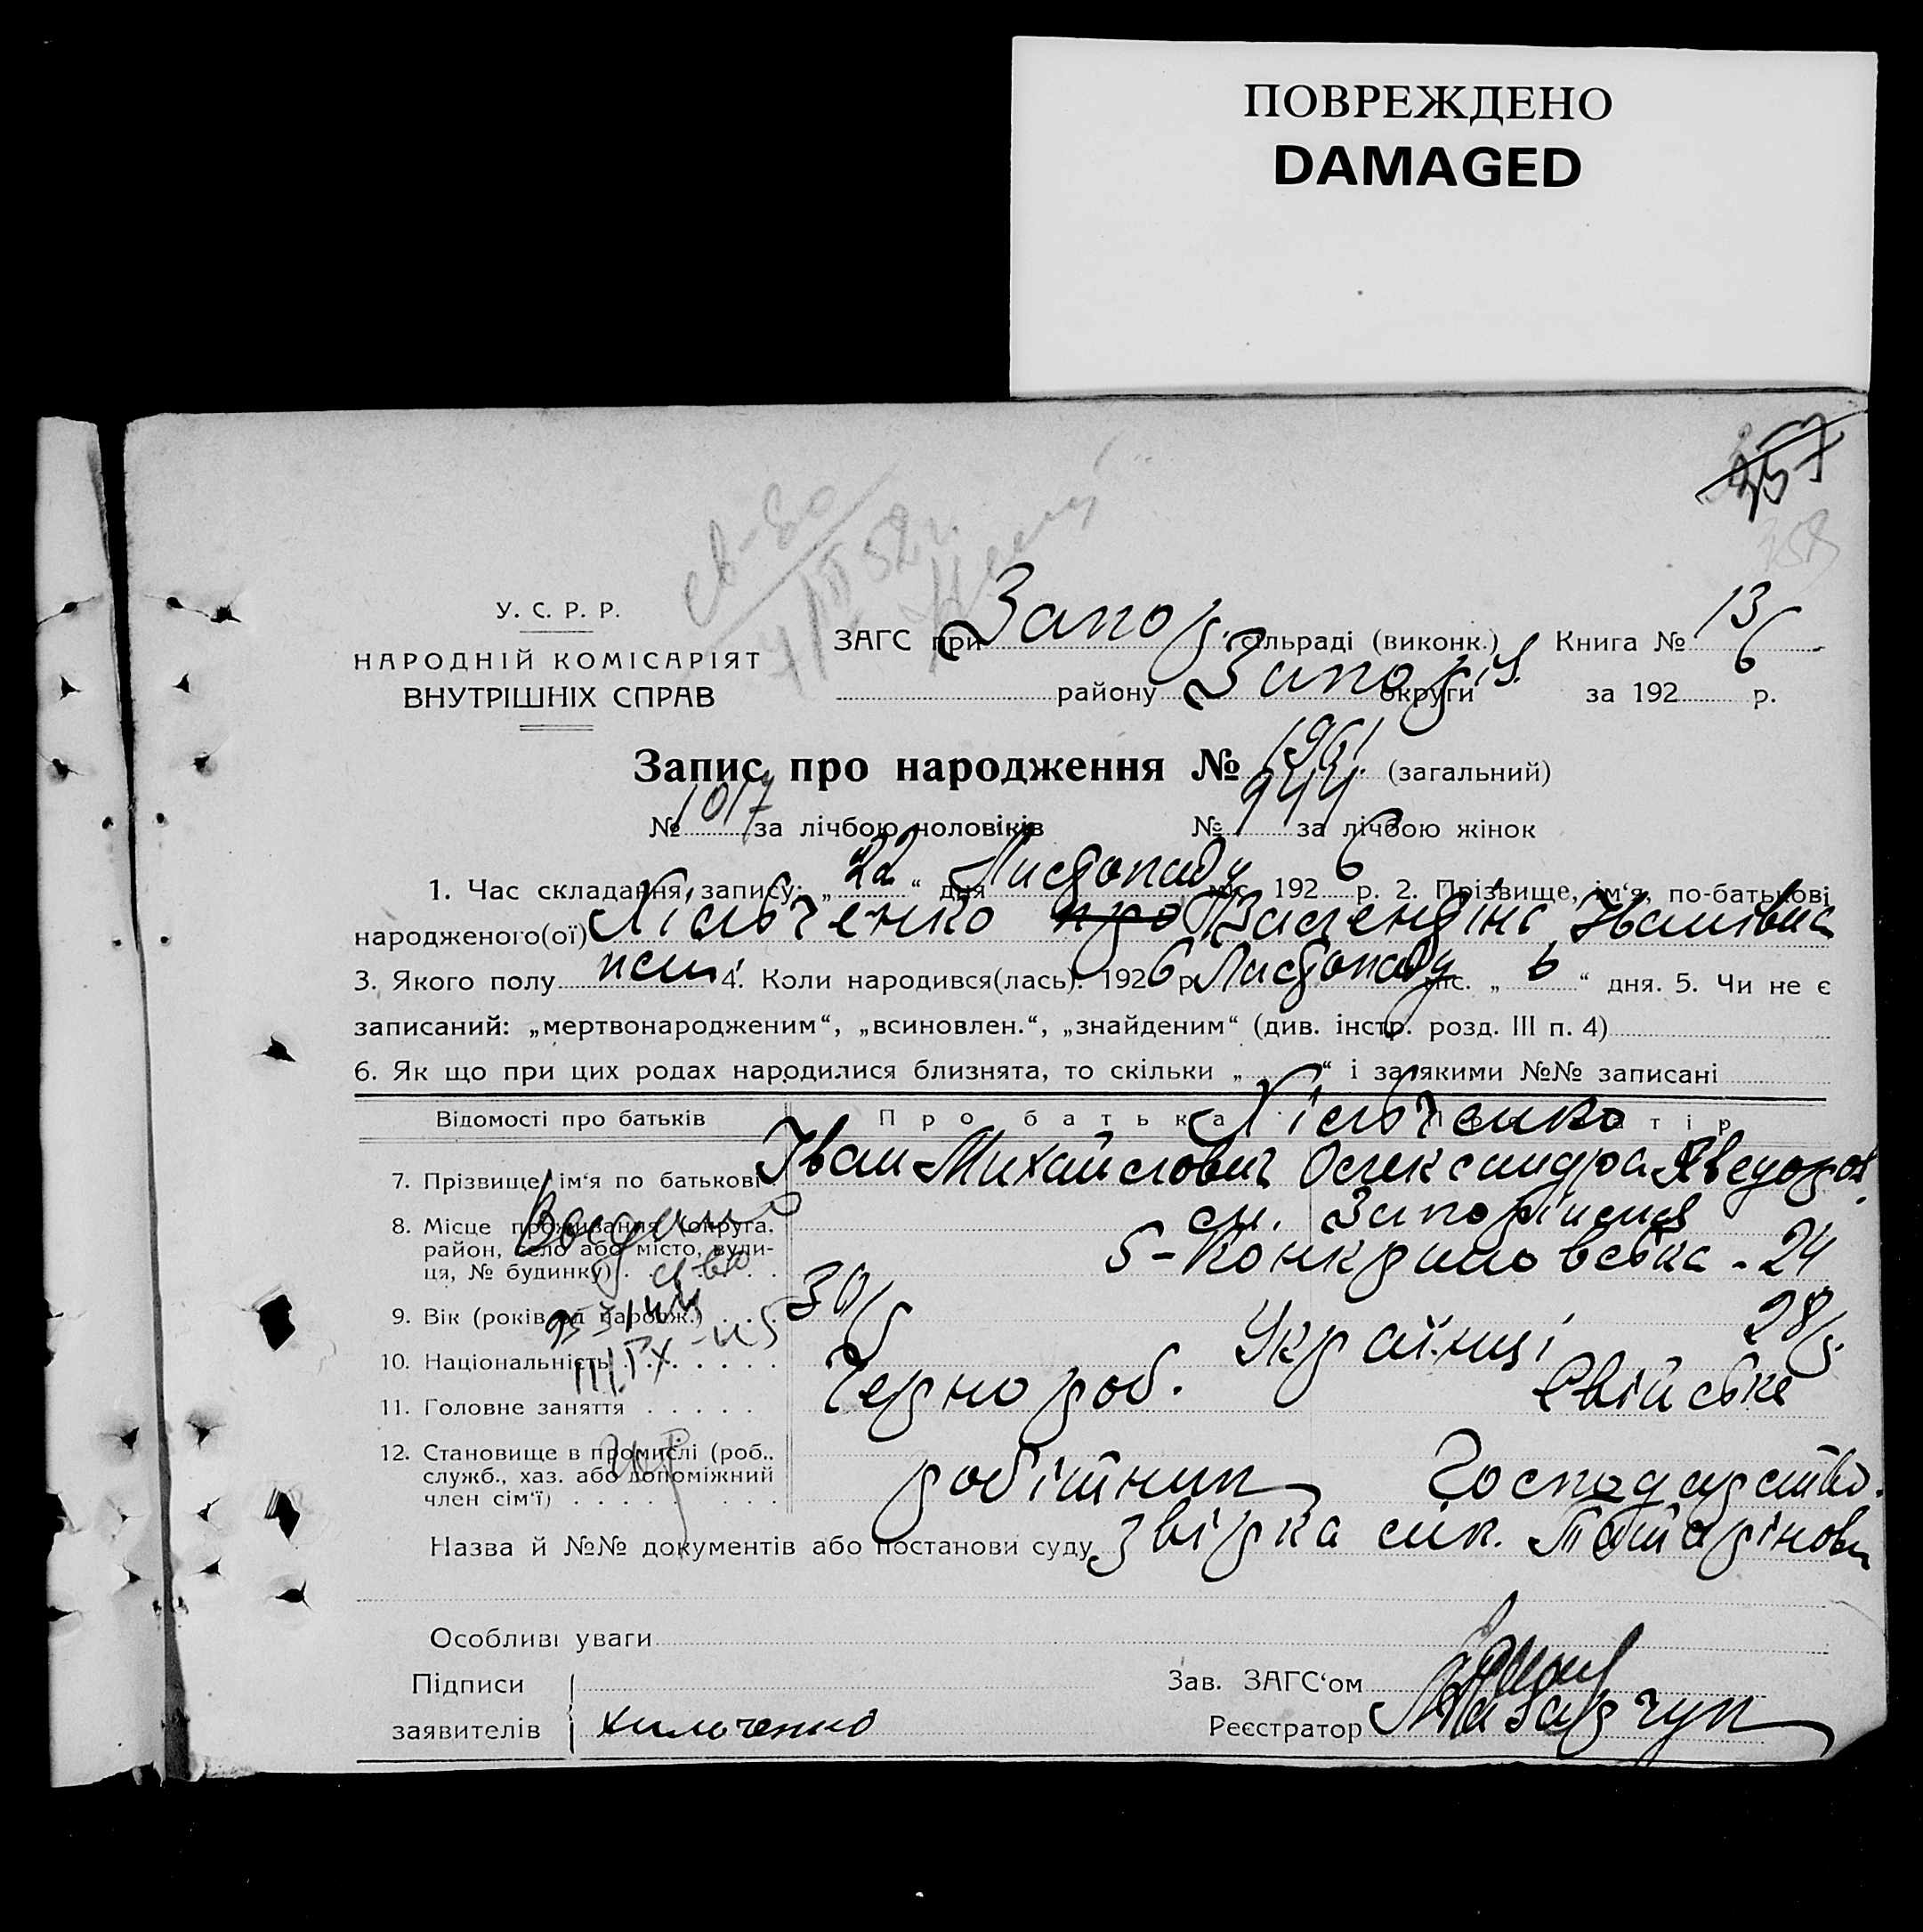 ПОВРЕЖДЕНО
DAMAGED
357
358
св-во
У. С. Р. Р.
НАРОДНІЙ КОМІСАРІЯТ
ВНУТРІШНІХ СПРАВ
ЗАГС при Запор. сільраді (виконк.) Книга № 13
району Запоріз. округи за 1926 р.
Запис про народження № 1961 (загальний)
№ 1017 за лічбою чоловіків № 944 за лічбою жінок
1. Час складання запису: „22“ дня Листопаду міс. 1926 р. 2. Прізвище, ім'я, по-батькові
народженого(ої) Хільченко Валендіна Іванівна
3. Якого полу жін. 4. Коли народився(лась): 1926 р. Листопаду міс. „6“ дня. 5. Чи не є
записаний: „мертвонародженим“, „всиновлен.“, „знайденим“ (див. інстр. розд. III п. 4)
6. Як що при цих родах народилися близнята, то скільки „ “ і за якими №№ записані
Відомості про батьків Про батька Про матір
Хільченко
7. Прізвище, ім'я по батькові Іван Михайлович Олександра Хведоров.
8. Місце проживання (округа, район, село або місто, вулиця, № будинку) ст. Запоріжжя
24
9. Вік (років од народж.) 30 28
10. Національність Українці
11. Головне заняття Чернороб. Свійське
12. Становище в промислі (роб., служб., хаз. або допоміжний член сім'ї) робітник Господарство.
Назва й №№ документів або постанови суду звірка
Особливі уваги
Підписи Зав. ЗАГС'ом
заявителів Хильченко Реєстратор Назарчук